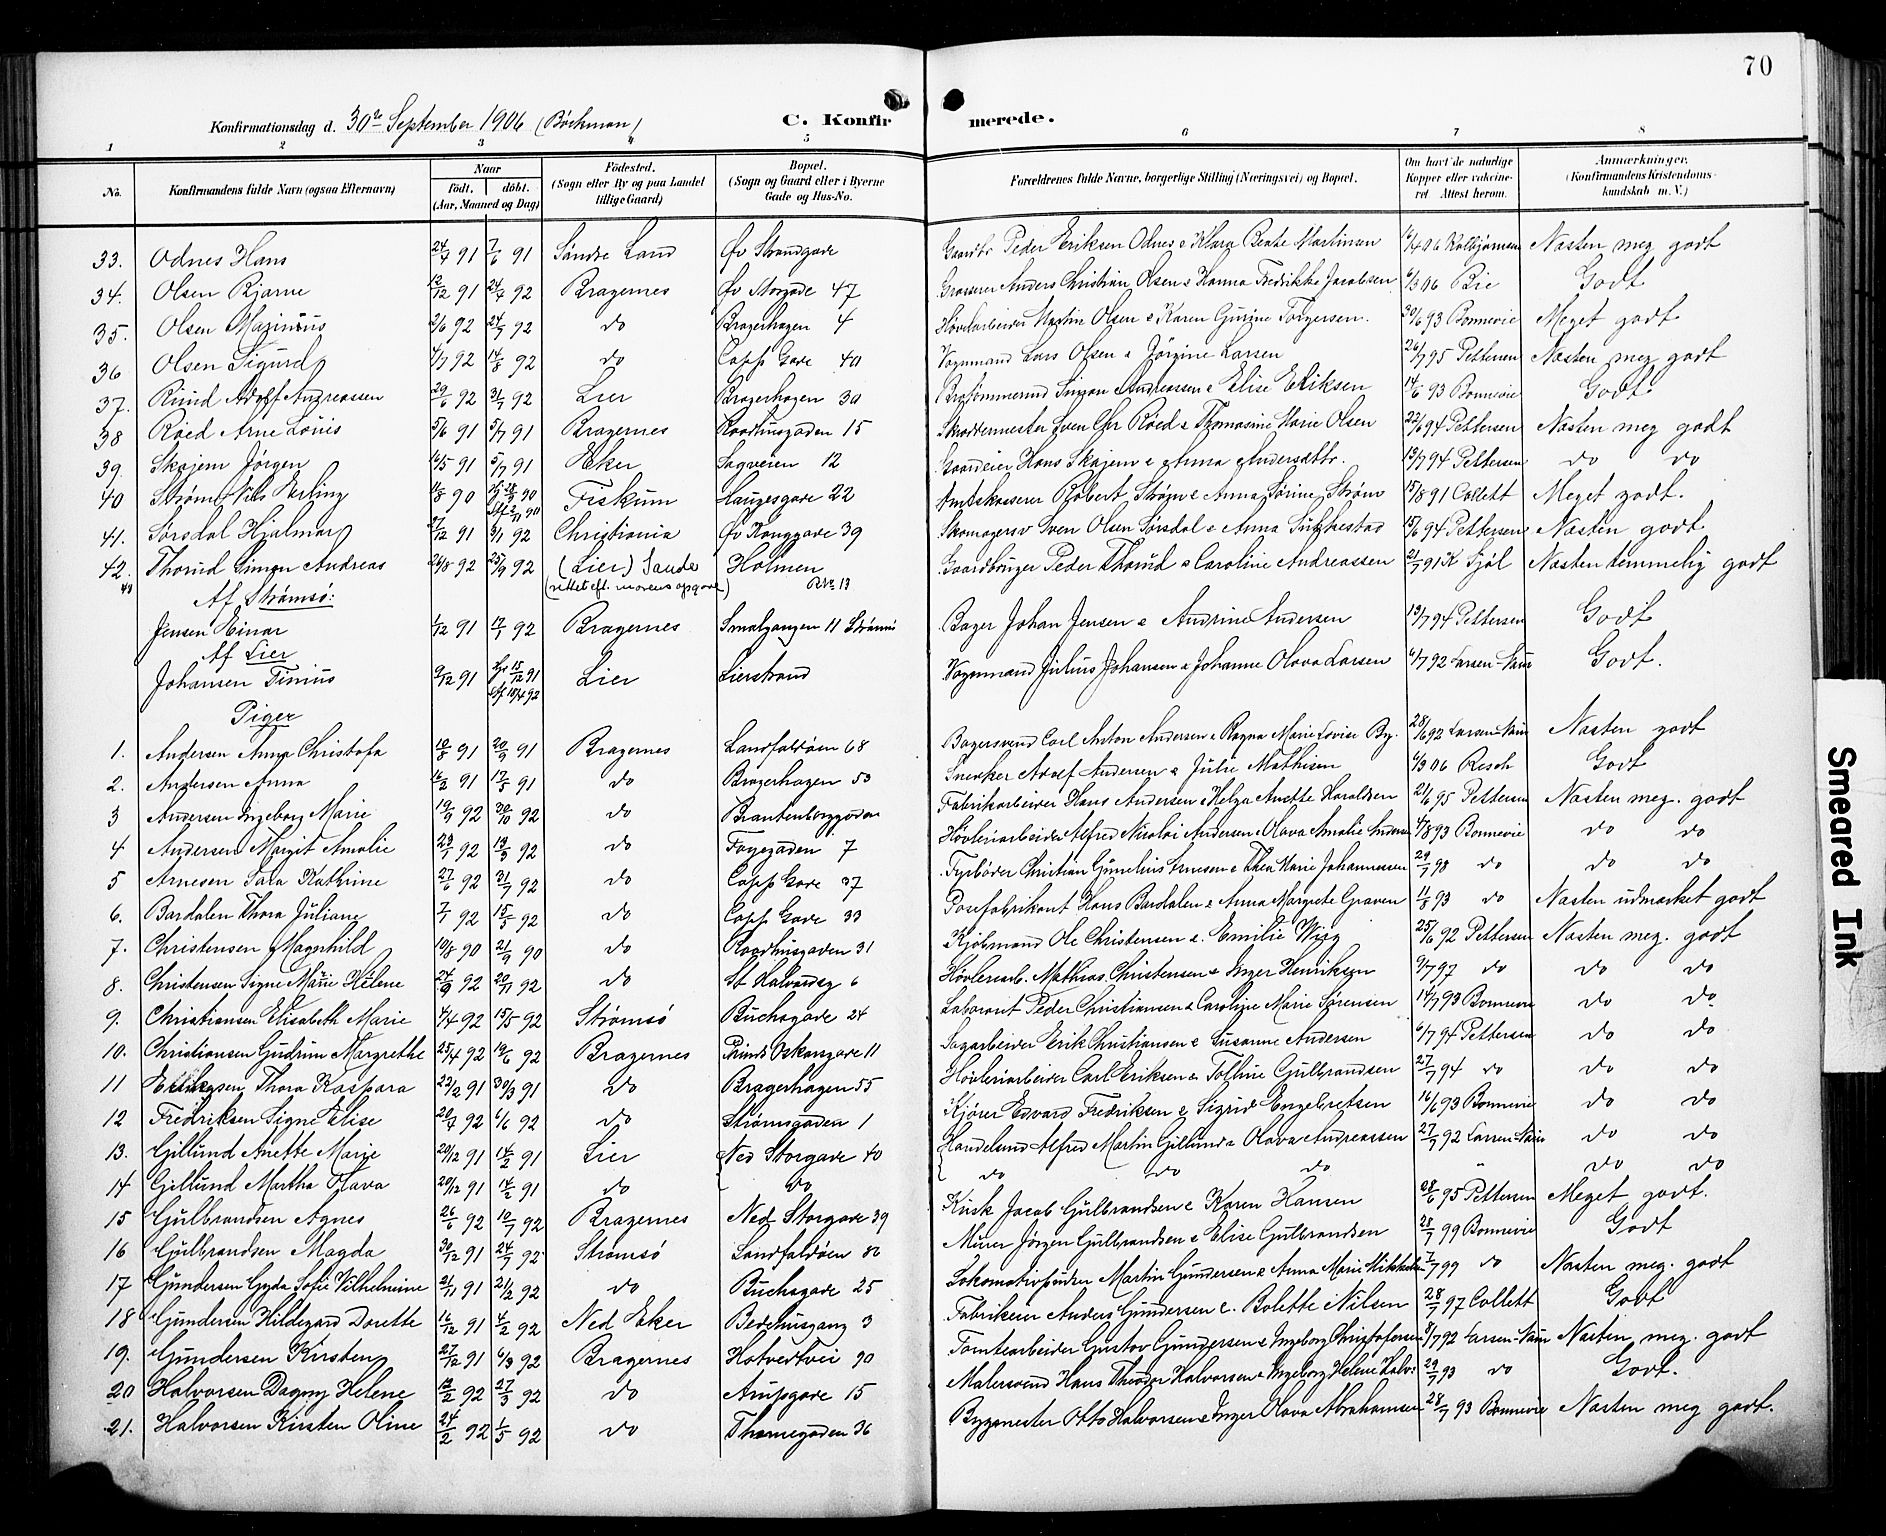 70
Konfirmationsdag d. 30te September 1906 (Böckman)
C. Konfirmerede.
1 2 3 4 5 6 7 8
No. Konfirmandens fulde Navn (ogsaa Efternavn) Naar født. døbt. (Aar, Maaned og Dag) Födested. (Sogn eller By og paa Landet tillige Gaard) Bopæl. (Sogn og Gaard eller i Byerne Gade og Hus-No. Forældrenes fulde Navne, borgerlige Stilling (Næringsvei) og Bopæl. Om havt de naturlige Kopper eller vaccineret Attest herom. Anmærkninger. (Konfirmandens Kristendomskundskab m. V.)
33. Odnes Hans 24/4 91 7/6 91 Søndre Land Øv Strandgade Gaardbr Peder Eriksen Odnes & Klara Beate Martinsen Kolbjørnsen Næsten meg godt
34. Olsen Bjarne 12/12 91 24/4 92 Bragernes Øv Storgade 47 Grosserer Anders Christian Olsen & Hanna Fredrikke Jacobsen 6/3 06 Bie Godt
35. Olsen Maginius 2/6 92 24/7 92 do Bragerhagen 4 Høvlarbeider Martin Olsen & Karen Gurine Torgersen. 20/6 93 Bonnevie Meget godt
36 Olsen Sigurd 4/7 92 14/8 92 do Capp Gade 40 Vognmand Lars Olsen & Jörgine Larsen 26/7 95 Pettersen Næsten meg godt
37. Ruud Adolf Andreassen 29/6 92 31/7 92 Lier Bragerhagen 30 Simon Andreassen & Elise Eriksen 14/6 93 Bonnevie Godt
38 Røed Arne Louis 5/6 91 5/7 91 Bragernes Raadhusgaden 15 Skræddermester Sven Chr Røed & Thomasine Marie Olsen 22/6 94 Pettersen Næsten meg godt
39. Skajem Jörgen 16/5 91 5/7 91 Eker Sagveien 12 Gaardeier Hans Skajem & Anna Andersdttr. 13/7 94 Pettersen do do
40 Strøm Nils Erling 11/8 90 Fiskum Haugesgade 22 Amtskasserer Robert Strøm & Anna Sørine Strøm 15/8 91 Collett Meget godt.
41. Sørsdal Hjalmar 27/12 91 3/1 92 Christiania Øv Konggade 39 Skomagersv Sven Olsen Sørsdal & Anna 15/6 94 Pettersen Næsten godt
42. Thorud Simon Andreas 24/8 92 25/9 92 (Lier) Sande Holmen Gaardbruger Peder Thorud & Caroline Andreassen 21/7 91 K Fjöl Næsten temmelig godt
(rettet eft. morens opgave)
43 Af Strømsö:
Jensen Einar 1/12 91 17/1 92 Bragernes Smalgangen 11 Strømsö Bager Johan Jensen & Andrine Andersen 13/7 94 Pettersen Godt
Af Lier
Johansen Tinius 9/12 91 Hj. 15/12 91 Stf 18/4 92 Lier Lierstrand Vognmand Julius Johansen & Johanne Olava Larsen 6/7 92 Larsen-Næss Godt.
Piger
1. Andersen Anna Christofa 18/8 91 20/9 91 Bragernes Landfaldöen 68 Bagersvend Carl Anton Andersen & Ragna Marie Lovise By. 28/6 92 Larsen-Næss Næsten godt
2. Andersen Anna 16/2 91 17/5 91 do Bragerhagen 53 Snedker Adolf Andersen & Julie Mathisen 6/3 06 Resch Godt
3 Andersen Ingeborg Marie 19/9 92 30/10 92 do Brantenborggaden Fabrikarbeider Hans Andersen & Helga Anette Haraldsen 21/6 95 Pettersen Næsten meg. godt
4 Andersen Margit Amalie 23/1 92 13/3 92 do Fogegaden 7 Høvleriarbeider Alfred Nicolai Andersen & Olava Amalie Andersen 4/8 93 Bonnevie do do
5 Arnesen Sara Kathrine 27/6 92 31/7 92 do Capp Gade 37 Fyrbøder Christian Gunelius Arnesen & Thea Marie Johannessen 29/7 98 do do do
6. Bardalen Thora Juliane 7/1 92 15/5 92 do Capp Gade 33 Posefabrikant Hans Bardalen & Anna Margrete Graven 11/8 93 do Næsten udmærket godt
7. Christensen Magnhild 10/8 90 21/9 90 do Raadhusgaden 31 Kjöbmand Ole Christensen &. Emilie Wiig 25/6 92 Pettersen Næsten meg. godt
8. Christensen Signe Marie Helene 24/9 92 20/11 92 do St Halvardsg 6 Høvleriarb. Mathias Christensen & Inger Henriksen 9/7 97 do do do
9. Christiansen Elisabeth Marie 4/4 92 15/5 92 Strømsö Buchsgade 24 Laborant Peder Christiansen & Caroline Marie Sørensen 14/7 93 Bonnevie do do
10. Christiansen Gudrun Margrethe 25/4 92 19/6 92 Bragernes Prinds Oskarsgade 11 Sagarbeider Erik Christiansen & Susanne Andersen 6/7 94 Pettersen do do
11 Eriksen Thora Kaspara 22/2 91 30/3 91 do Bragerhagen 55 Høvleriarbeider Carl Eriksen & Tolline Gulbrandsen 27/7 94 do do do
12 Fredriksen Signe Elise 20/4 92 6/6 92 do Strømsgaden 1 Kjører Edvard Fredriksen & Sigrid Engebretsen 16/6 93 Bonnevie do do
13. Gillund Anette Marie 20/12 91 14/2 91 Lier Ned Storgade 40 Handelsmd Alfred Martin Gillund & Olava Andreassen 27/7 92 Larsen-Næss do do
14 Gillund Martha Olava 20/12 91 14/2 91 do do do do do " do do
15 Gulbrandsen Agnes 26/6 92 10/7 92 Bragernes Ned Storgade 39 Kusk Jacob Gulbrandsen & Karen Hansen 28/6 95 Pettersen Meget godt.
16 Gulbrandsen Magda 30/12 91 24/7 92 Strømsö Landfaldöen 86 Murer Jörgen Gulbrandsen & Elise Gulbrandsen 28/7 99 Bonnevie Godt
17 Gundersen Gyda Sofie Vilhelmine 21/11 91 21/2 92 do Buchsgade 25 Lokomotivpudser Martin Gundersen & Anna Marie Mikkelsen 7/7 99 do Næsten meg. godt
18 Gundersen Hildegard Dorette 16/12 91 4/2 92 Ned Eker Bedehusgang 3 Fabrikeier Anders Gundersen &. Bolette Nilsen 28/7 97 Collett Godt
19. Gundersen Kirsten 27/12 91 6/3 92 Bragernes Hotvedtvei 90 Tomtearbeider Gustav Gundersen & Ingeborg Christofersen 8/7 92 Larsen-Næss Næsten meg. godt
20 Halvorsen Dagny Helene 12/2 92 27/3 92 do Arupsgade 15 Malersvend Hans Theodor Halvorsen & Ingeborg Helene Halv. 29/7 93 do Godt.
21. Halvorsen Kirsten Oline 24/2 92 1/5 92 do Thornegaden 36 Bygmester Otto Halvorsen & Inger Olava Abrahamsen 28/7 93 Bonnevie Næsten meg godt.
Smeared Ink